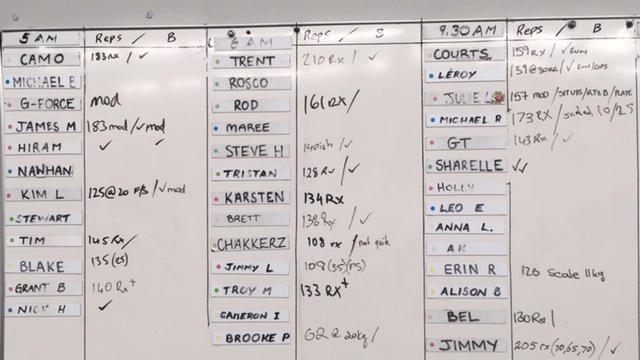 5 AM Reps / B
CAMO 183 Rx / ✓
MICHAEL E
G-FORCE mod
JAMES M 183 mod / ✓ mod
HIRAM ✓ ✓
NAWHAN
KIM L 125 @ 20 F/S / ✓ mod
STEWART
TIM 145 Rx /
BLAKE 135 (55)
GRANT B 140 Rx+
NICK H ✓
6 AM Reps / B
TRENT 210 Rx / ✓
ROSCO
ROD 161 Rx /
MAREE
STEVE H 140ish / ✓
TRISTAN 128 Rx / ✓
KARSTEN 134 Rx
BRETT 138 Rx / ✓
CHAKKERZ 108 rx / not quik
JIMMY L 108 (35) (RS)
TROY M 133 Rx+
CAMERON I
BROOKE P 62 @ 20kg /
9.30 AM Reps / B
COURTS 159 Rx / ✓
LEROY 139 @ 30KG / ✓
JULIE L 157 mod / SITUPS / / PLATE
MICHAEL R 173 RX / scaled 10/25
GT 143 Rx / ✓
SHARELLE ✓✓
HOLLY
LEO E
ANNA L.
AK
ERIN R 126 Scale 11kg
ALISON B
BEL 130 Rx /
JIMMY 205 rx (70,65,70) / ✓